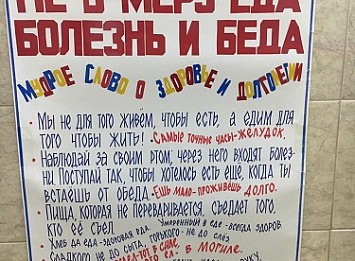 НЕ В МЕРУ ЕДА
БОЛЕЗНЬ И БЕДА
МУДРОЕ СЛОВО О ЗДОРОВЬЕ И ДОЛГОЛЕТИИ
• МЫ НЕ ДЛЯ ТОГО ЖИВЁМ, ЧТОБЫ ЕСТЬ, А ЕДИМ ДЛЯ
ТОГО ЧТОБЫ ЖИТЬ! •САМЫЕ ТОЧНЫЕ ЧАСЫ-ЖЕЛУДОК.
• НАБЛЮДАЙ ЗА СВОИМ РТОМ, ЧЕРЕЗ НЕГО ВХОДЯТ БОЛЕЗ-
НИ. ПОСТУПАЙ ТАК, ЧТОБЫ ХОТЕЛОСЬ ЕСТЬ ЕЩЁ, КОГДА ТЫ
ВСТАЁШЬ ОТ ОБЕДА. •ЕШЬ МАЛО-ПРОЖИВЁШЬ ДОЛГО.
• ПИЩА, КОТОРАЯ НЕ ПЕРЕВАРИВАЕТСЯ, СЪЕДАЕТ ТОГО,
КТО ЕЁ СЪЕЛ. УМЕРЕННЫЙ В ЕДЕ-ВСЕГДА ЗДОРОВ.
ХЛЕБ ДА ЕДА-ЗДОРОВАЯ
СЛАДКОГО НЕ ДО СЫТА, ГОРЬКОГО-НЕ ДО СЛЁЗ
ТОТ В СИЛЕ,
ЕЛ- В МОГИЛЕ.